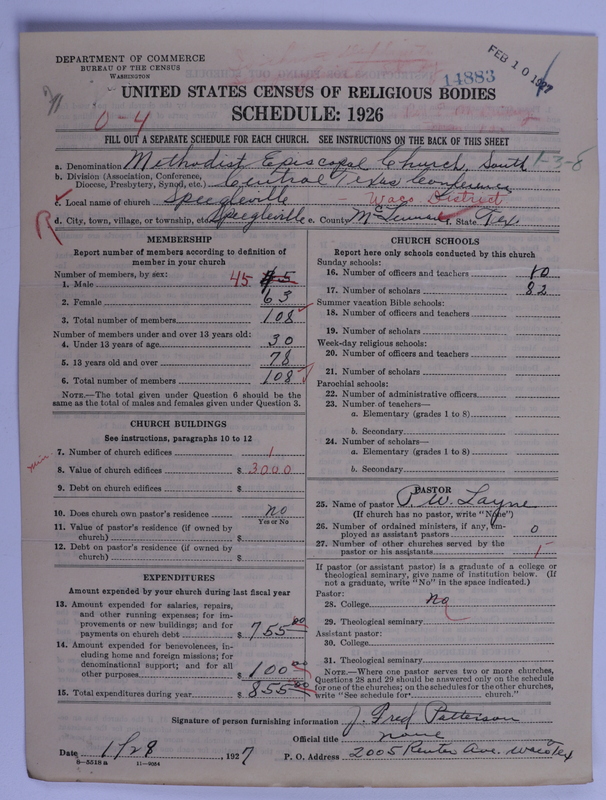 DEPARTMENT OF COMMERCE
BUREAU OF THE CENSUS
WASHINGTON
FEB 10 1927
14883
UNITED STATES CENSUS OF RELIGIOUS BODIES
SCHEDULE: 1926
0-4
FILL OUT A SEPARATE SCHEDULE FOR EACH CHURCH. SEE INSTRUCTIONS ON THE BACK OF THIS SHEET
a. Denomination Methodist Episcopal Church, South 1-3-8
b. Division (Association, Conference, Diocese, Presbytery, Synod, etc.) Central Texas Conference
c. Local name of church Speegleville - Waco District
R
d. City, town, village, or township, etc. Speegleville e. County McLennan f. State Tex
MEMBERSHIP
Report number of members according to definition of member in your church
Number of members, by sex:
1. Male 45 45
2. Female 63
3. Total number of members 108
Number of members under and over 13 years old:
4. Under 13 years of age 30
5. 13 years old and over 78
6. Total number of members 108
NOTE.—The total given under Question 6 should be the same as the total of males and females given under Question 3.
CHURCH BUILDINGS
See instructions, paragraphs 10 to 12
7. Number of church edifices 1
min.
8. Value of church edifices $ 3000
9. Debt on church edifices $
10. Does church own pastor's residence? no
Yes or No
11. Value of pastor's residence (if owned by church) $
12. Debt on pastor's residence (if owned by church) $
EXPENDITURES
Amount expended by your church during last fiscal year
13. Amount expended for salaries, repairs, and other running expenses; for improvements or new buildings; and for payments on church debt $ 755 00
14. Amount expended for benevolences, including home and foreign missions; for denominational support; and for all other purposes $ 100 00
15. Total expenditures during year $ 855 00
CHURCH SCHOOLS
Report here only schools conducted by this church
Sunday schools:
16. Number of officers and teachers 10
17. Number of scholars 82
Summer vacation Bible schools:
18. Number of officers and teachers
19. Number of scholars
Week-day religious schools:
20. Number of officers and teachers
21. Number of scholars
Parochial schools:
22. Number of administrative officers
23. Number of teachers—
a. Elementary (grades 1 to 8)
b. Secondary
24. Number of scholars—
a. Elementary (grades 1 to 8)
b. Secondary
PASTOR
25. Name of pastor P. W. Layne
(If church has no pastor, write "None")
26. Number of ordained ministers, if any, employed as assistant pastors 0
27. Number of other churches served by the pastor or his assistants 1
If pastor (or assistant pastor) is a graduate of a college or theological seminary, give name of institution below. (If not a graduate, write "No" in the space indicated.)
Pastor:
28. College no
29. Theological seminary
Assistant pastor:
30. College
31. Theological seminary
NOTE.—Where one pastor serves two or more churches, Questions 28 and 29 should be answered only on the schedule for one of the churches; on the schedules for the other churches, write "See schedule for church."
Signature of person furnishing information J. Fred Patterson
Official title none
Date 1/28, 1927 P. O. Address 2005 Reuter Ave. Waco Tex
8—5518 a 11—9034